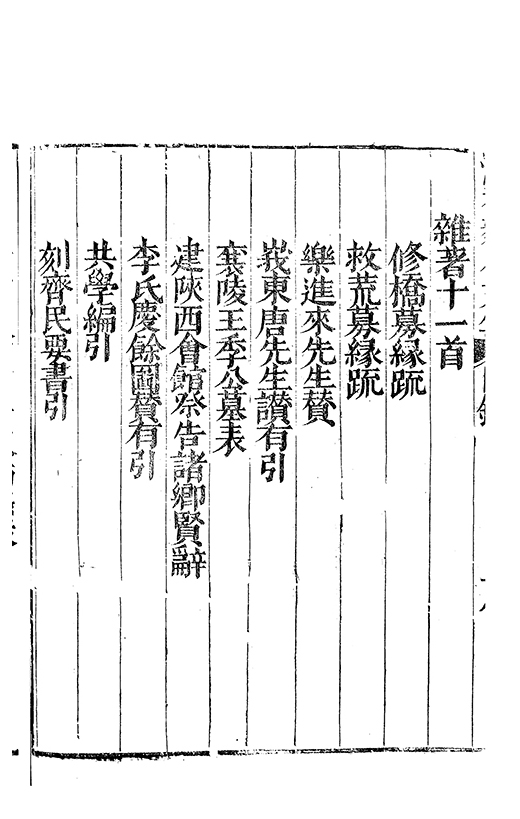 雜著十一首
修橋募緣疏
救荒募緣疏
樂進來先生贊
峩東唐先生讃有引
襄陵王季公墓表
建陝西會館祭告諸鄉賢辭
李氏慶餘圖贊有引
共學編引
刻齊民要書引